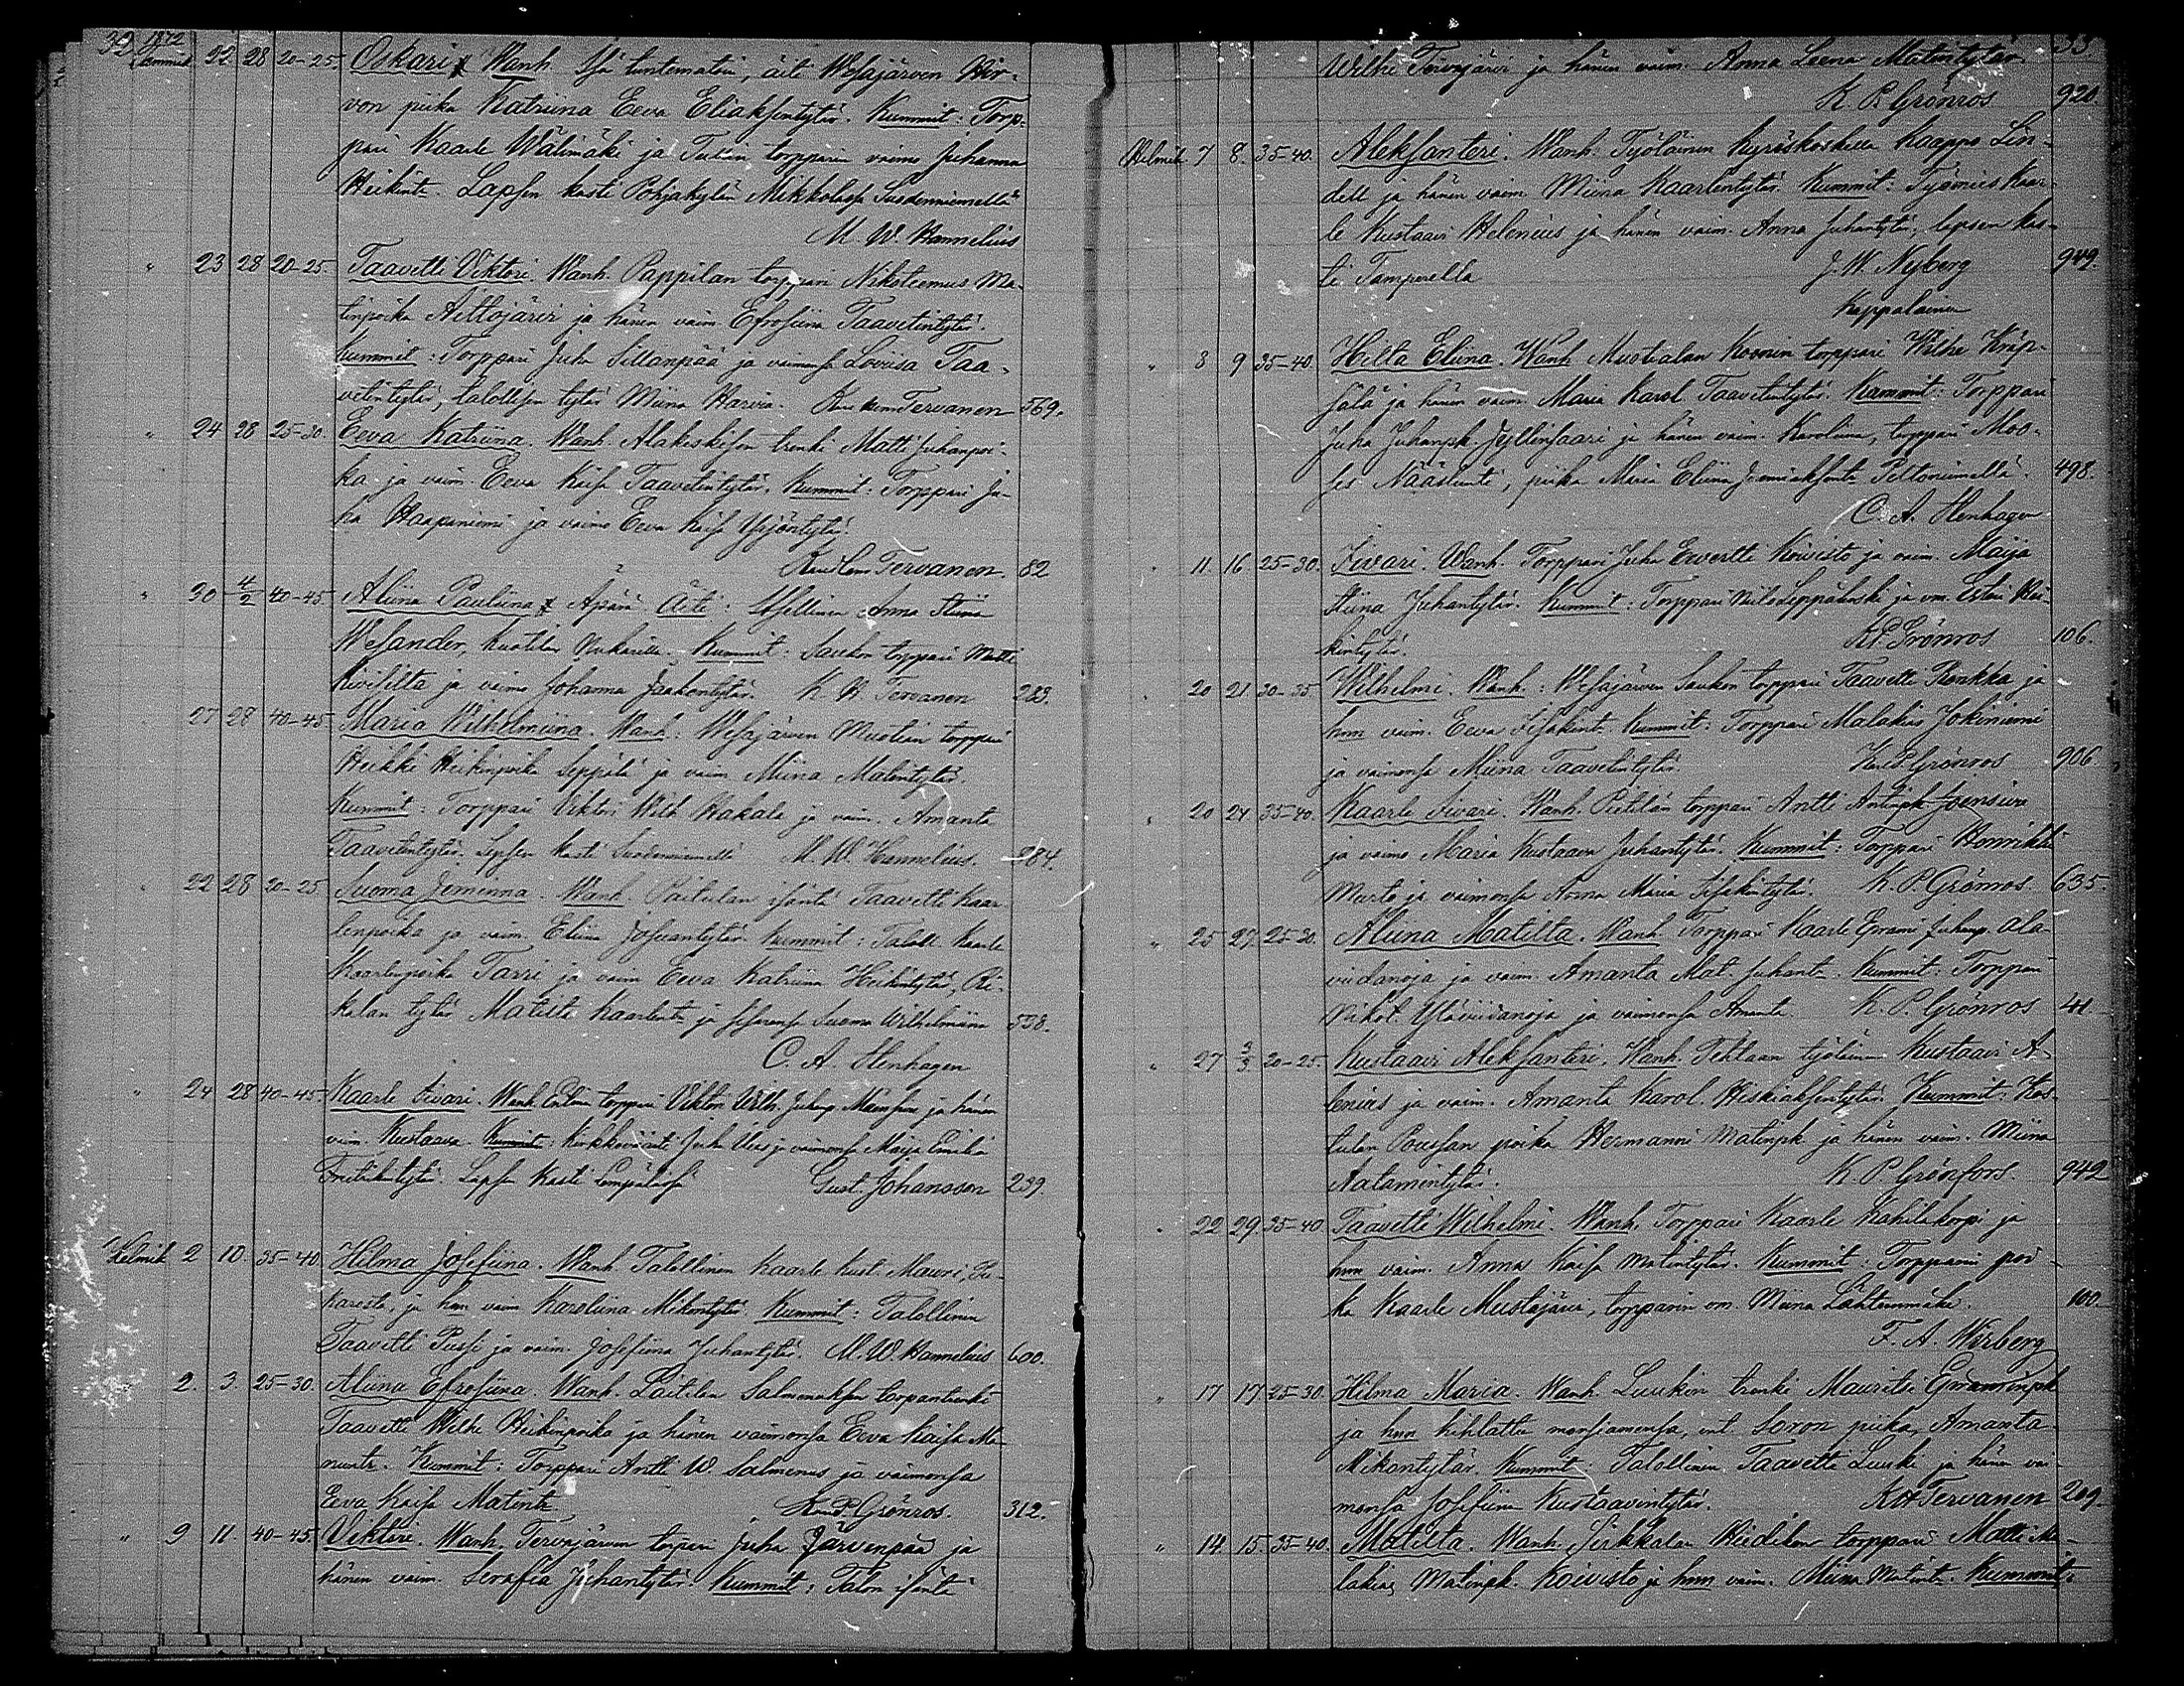 32 1872
Tammik 22 28 20-25. Oskari x Wanh. Isä tuntematoin, äiti Wesajärven Hir-
von piika Katriina Eeva Eliaksentytär. Kummit: Torp-
pari Kaarle Wälimäki ja torpparin vaimo Juhanna
Heikint. Lapsen kasti Pohjakylän Mikkolassa Suodenniemellä
M. W. Hannelius
" 23 28 20-25. Taavetti Viktori. Wanh. Pappilan torppari Nikoteemus Ma-
tinpoika Aittojärvi ja hänen vaim. Efrosiina Taavetintytär.
Kummit: Torppari Juha Sillanpää ja vaimonsa Loviisa Taa-
vetintytär, talollisen tytär Miina Harvia. Tervanen 569.
" 24 28 25-30. Eeva Katriina. Wanh. Alakeskisen trenki Matti Juhanpoi-
ka ja vaim. Eeva Kaisa Taavetintytär. Kummit: Torppari Ju-
ha Haapaniemi ja vaimo Eeva Kaisa Yrjöntytär.
Tervanen. 82
" 30 4/2 40-45. Aliina Pauliina x Äpärä. Äiti: Itsellinen Anna Stiina
Wesander, Kummit: Saukon torppari Matti
Kivisilta ja vaimo Johanna Jaakontytär. K. H. Tervanen 283.
" 27 28 40-45 Maria Wilhelmiina. Wanh: Wesajärven Mustian torppari
Heikki Heikinpoika Seppälä ja vaim. Miina Matintytär.
Kummit: Torppari Viktori Wilh. Wakala ja vaim. Amanta
Taavetintytär. Lapsen kasti Suodenniemellä M. W. Hannelius. 284.
" 22 28 20-25 Suoma Jemina. Wanh. Paitulan isäntä Taavetti Kaar-
lenpoika ja vaim. Eliina Josuantytär. Kummit: Taloll. Kaarle
Kaarlenpoika Tarri ja vaim. Eeva Katriina Heikintytär, Ri-
kalan tytär Matilta Kaarlent. ja sisarensa Suoma Wilhelmiina 598.
C. A. Stenhagen
" 24 28 40-45. Kaarle Iivari. Wanh. torppari Viktori Wilh. Juhanp. ja hänen
vaim. Kustaava. Kummit: Kirkkoväärti Juh. ja vaimonsa Maija Emilia
Lapsen kasti Lempäälässä Gust. Johansson 239.
Helmik 2 10. 35-40. Hilma Josefiina. Wanh. Talollinen Kaarle Kust. Mauri,
ja hnn vaim. Karoliina Mikontytär. Kummit: Talollinen
Taavetti Pussi ja vaim. Josefiina Juhantytär. M. W. Hannelius 600.
" 2. 3. 25-30. Aliina Efrosiina. Wanh. Laitilan Salmenaksen torpantrenki
Taavetti Wilhe Heikinpoika ja hänen vaimonsa Eeva Kaisa Ma-
Kummit: Torppari Antti W. Salmenus ja vaimonsa
Eeva Kaisa Matint. Grönros. 312.
" 9 11. 40-45. Viktori. Wanh. Tervajärven torppari Juha Järvenpää ja
hänen vaim. Serafia Juhantytär. Kummit: Talon isäntä
33
Wilhe Tervajärvi ja hänen vaim. Anna Leena Matintytär.
K. P. Grönros 920.
Helmik 7 8. 35-40. Aleksanteri. Wanh. Työläinen Kyröskoskella Kaappo Lin-
dell ja hänen vaim. Miina Kaarlentytär. Kummit: Työmies Kaar-
le Kustaavi Helenius ja hänen vaim. Anna Juhantytär, lapsen kas-
ti Tampereella J. W. Nyberg 949.
Kappalainen
" 8 9 35-40. Helta Eliina. Wanh. Mustialan Koonin torppari Wilhe Kräp-
sälä ja hänen vaim. Maria Karol. Taavetintytär. Kummit: Torppari
Juha Juhanpk. Jyllinsaari ja hänen vaim. Karoliina, torppari Moo-
ses piika Maria Eliina Peltoniemellä. 498.
C. A. Stenhagen
" 11. 16 25-30. Iivari. Wanh. Torppari Juha Eevertti Koivisto ja vaim. Maija
Stiina Juhantytär. Kummit: Torppari Niilo Leppäkoski ja vm. Esteri Hei-
kintytär. K. P. Grönros 106.
" 20 21 30-35 Wilhelmi. Wanh.: Wesajärven Saukon torppari Taavetti Ronkka ja
hnn vaim. Eeva Iisakint. Kummit: Torppari Malakias Jokiniemi
ja vaimonsa Miina Taavetintytär. K. P. Grönros 906.
" 20 24 35-40. Kaarle Iivari. Wanh. Pietilän torppari Antti Antinpk. Joensuu
ja vaimo Maria Kustaava Juhantytär. Kummit: Torppari Henrikki
Murto ja vaimonsa Anna Maria Iisakintytär. K. P. Grönros. 635.
" 25 27. 25-30. Aliina Matilta. Wanh. Torppari Kaarle Juhanp. Ala-
viidanoja ja vaim. Amanta Mat. Juhant. Kummit: Torppari
Nikot. Yläviidanoja ja vaimonsa Amanta. K. P. Grönros 41.
" 27 3/3 20-25. Kustaavi Aleksanteri. Wanh. Tehtaan työläinen Kustaavi A-
lenius ja vaim. Amanta Karol. Hiskiaksentytär. Kummit: Kos-
tulan poika Hermanni Matinpk. ja hänen vaim. Miina
Aatamintytär. K. P. Grönfors. 942
" 22 29. 35-40 Taavetti Wilhelmi. Wanh. Torppari Kaarle Kahilakorpi ja
hnn vaim. Anna Kaisa Matintytär. Kummit: Torpparin poi-
ka Kaarle Mustajärvi, torpparin vm. Miina Lähteenmäki. 100.
F. A. Wirberg
" 17 17 25-30. Hilma Maria. Wanh. Luukin trenki Mauritsi
ja hnn kihlattu morsiamensa, ent. Soron piika, Amanta
Mikontytär. Kummit: Talollinen Taavetti Luuki ja hänen vai-
monsa Josefiina Kustaavintytär. K H Tervanen 209.
" 14. 15. 35-40. Matilta. Wanh. Sirkkalan torppari Matti Ma-
lakias Matinpk. Koivisto ja hnn vaim. Miina Matint. Kummit: